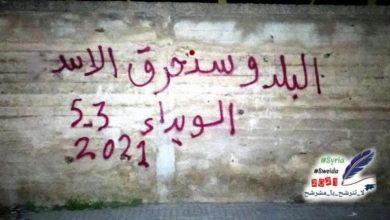 البلد وسنحرق الاسد
السويداء 5.3
2021
#Syria
#Sweida
2021
لا_تترشح_يا_مشرشح